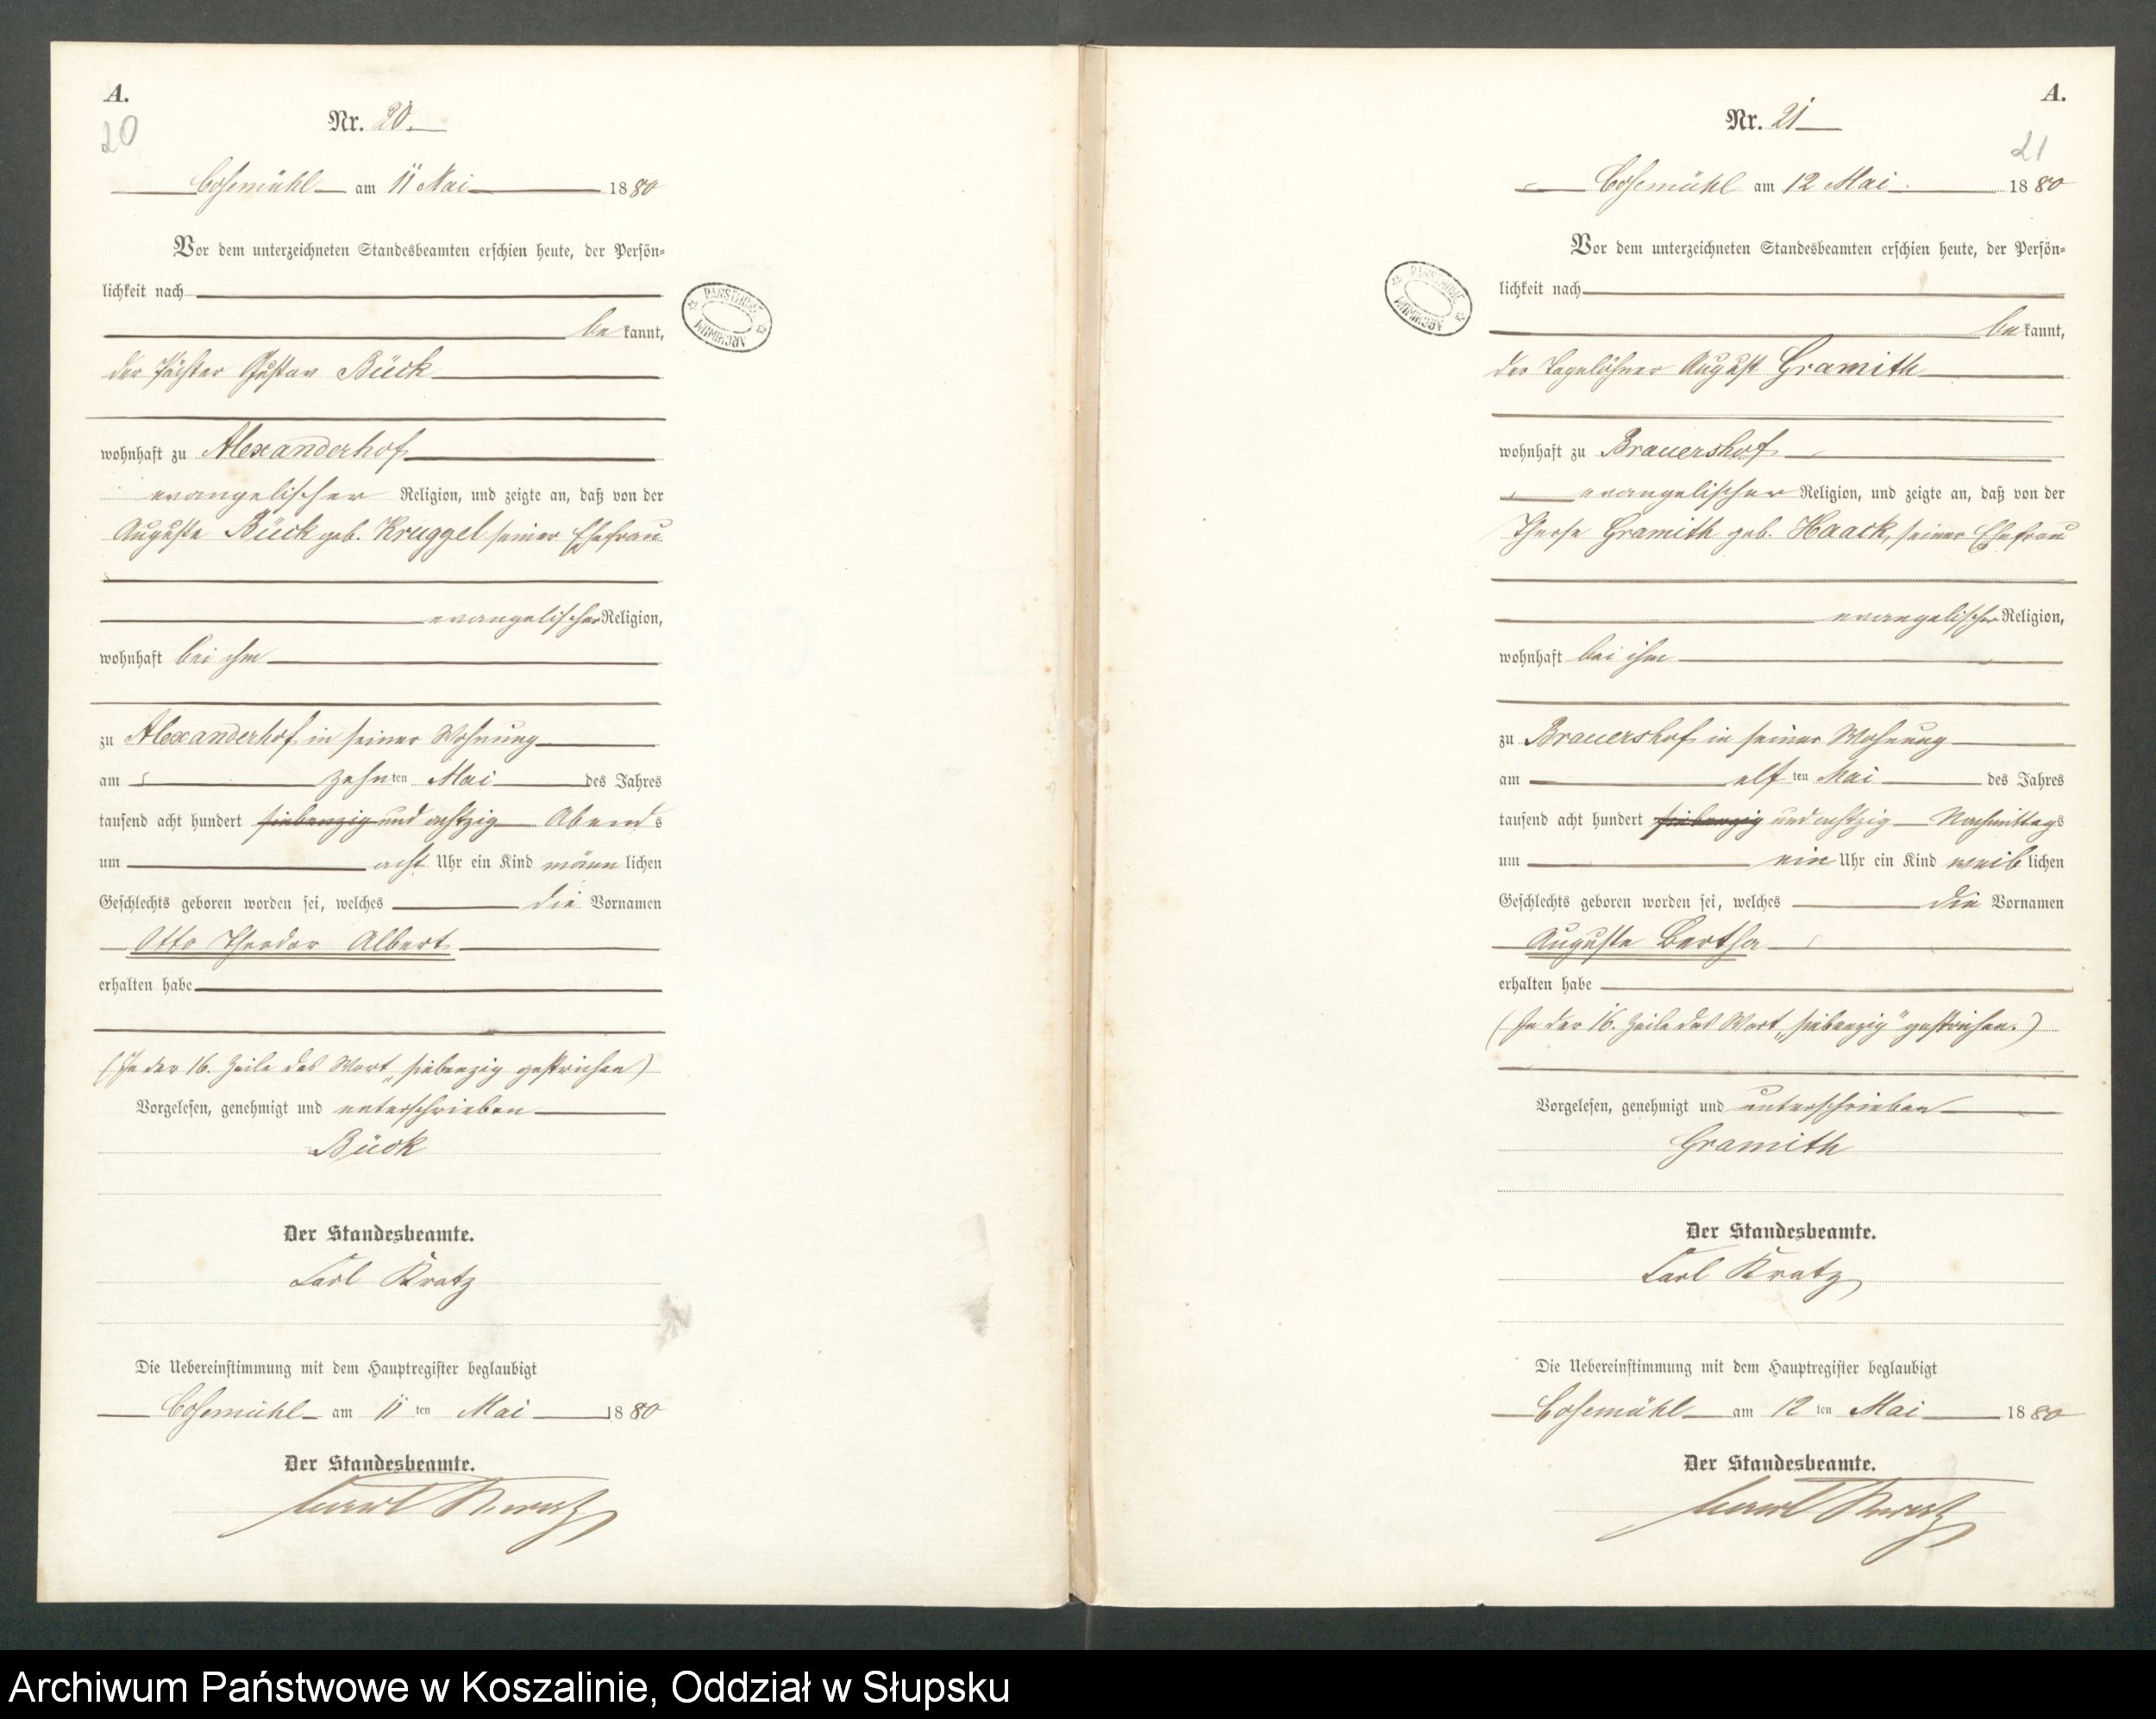 A.
20
Nr. 20.
Cosemühl am 11 Mai 1880
Vor dem unterzeichneten Standesbeamten erschien heute, der Persön-
lichkeit nach
bekannt,
der Pächter Gustav Bück
wohnhaft zu Alexanderhof
evangelischer Religion, und zeigte an, daß von der
Auguste Bück geb. Kruggel seiner Ehefrau
evangelischer Religion,
wohnhaft bei ihm
zu Alexanderhof in seiner Wohnung
am zehnten Mai des Jahres
tausend acht hundert siebenzig und achtzig Abends
um acht Uhr ein Kind männlichen
Geschlechts geboren worden sei, welches die Vornamen
Otto Theodor Albert
erhalten habe
(In der 16. Zeile das Wort „siebenzig gestrichen)
Vorgelesen, genehmigt und unterschrieben
Bück
Der Standesbeamte.
Carl Kratz
Die Uebereinstimmung mit dem Hauptregister beglaubigt
Cosemühl am 11ten Mai 1880
Der Standesbeamte.
Carl Kratz
PAŃSTWOWE ARCHIWUM
A.
21
Nr. 21
Cosemühl am 12 Mai 1880
Vor dem unterzeichneten Standesbeamten erschien heute, der Persön-
lichkeit nach
bekannt,
der Tagelöhner August Gramith
wohnhaft zu Brauershof
evangelischer Religion, und zeigte an, daß von der
Therse Gramith geb. Haack, seiner Ehefrau
evangelischer Religion,
wohnhaft bei ihm
zu Brauershof in seiner Wohnung
am elften Mai des Jahres
tausend acht hundert siebenzig und achtzig Nachmittags
um ein Uhr ein Kind weiblichen
Geschlechts geboren worden sei, welches die Vornamen
Auguste Bertha
erhalten habe
(In der 16. Zeile das Wort „siebenzig" gestrichen.)
Vorgelesen, genehmigt und unterschrieben
Gramith
Der Standesbeamte.
Carl Kratz
Die Uebereinstimmung mit dem Hauptregister beglaubigt
Cosemühl am 12ten Mai 1880
Der Standesbeamte.
Carl Kratz
PAŃSTWOWE ARCHIWUM
Archiwum Państwowe w Koszalinie, Oddział w Słupsku